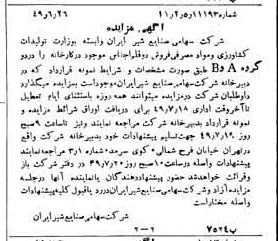 شماره ۱۱۱۹۳/۵/۲/۱۱ ۴۹/۶/۲۶
آگهی مزایده
شرکت سهامی صنایع شیر ایران وابسته بوزارت تولیدات
کشاورزی و مواد مصرفی فروش دو قلم اجناس موجود در کارخانه را در دو
گروه A و B طبق صورت مشخصات و شرایط نمونه قرارداد که در
دبیرخانه شرکت سهامی صنایع شیر ایران موجود است بمزایده میگذارد
داوطلبان شرکت در مزایده میتوانند همه روزه باستثنای ایام تعطیل
تا آخر وقت اداری ۴۹/۷/۱۸ برای دریافت اوراق شرائط مزایده و
نمونه قرارداد بدبیرخانه شرکت مراجعه نمایند و تا ساعت ۹ صبح
روز ۴۹/۷/۱۹ جهت تسلیم پیشنهادات خود بدبیرخانه شرکت واقع
در تهران خیابان فرح شمالی کوی سرمد شماره ۳۱ مراجعه نمایند
پیشنهادات واصله در ساعت ۱۰ صبح روز ۴۹/۷/۲۰ در دفتر شرکت باز
و قرائت خواهد شد حضور پیشنهاد دهندگان یا نماینده آنها در جلسه
مزایده آزاد و شرکت سهامی صنایع شیر ایران در رد یا قبول کلیه پیشنهادات
واصله مختار است
شرکت سهامی صنایع شیر ایران
پ ۷۵۲۴ ۲–۲